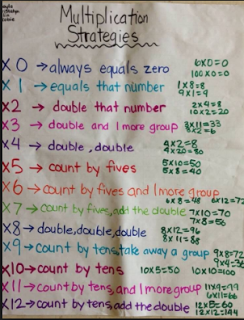 Multiplication
Strategies
X 0 → always equals zero 6x0=0
100x0=0
X 1 → equals that number 1x8=8
9x1=9
x2 → double that number 2x4=8
10x2=20
x3 → double and 1 more group 3x11=33
3x2=6
x4 → double, double 4x2=8
4x20=80
x5 → count by fives 5x10=50
5x8=40
x6 → count by fives and 1 more group
6x8=48 6x12=72
x7 → count by fives, add the double 7x10=70
7x8=56
x8 → double, double, double 8x12=96
8x11=88
x9 → count by tens, take away a group 9x8=72
9x4=36
x10 → count by tens 10x5=50 10x10=100
x11 → count by tens, and 1 more group 11x9=99
6x11=66
x12 → count by tens, add the double 12x5=60
12x12=144